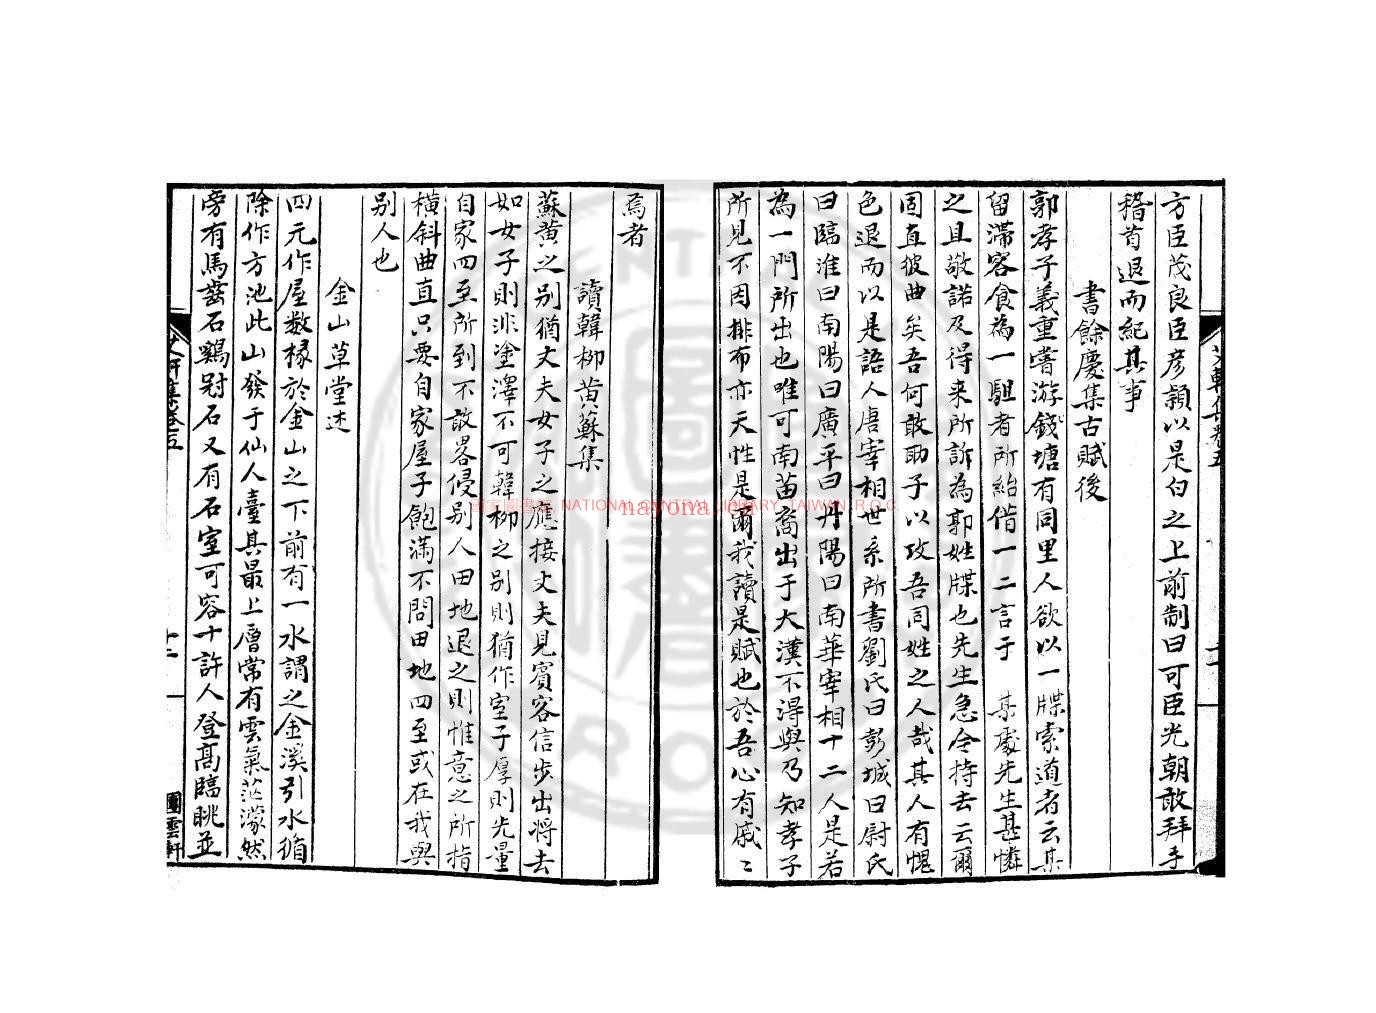 方臣茂良臣彦頴以是白之上前制曰可臣光朝敢拜手
稽首退而紀其事
書餘慶集古賦後
郭孝子義重嘗游錢塘有同里人欲以一牒索道者云某
留滯客食為一駔者所紿借一二言于 某處先生甚憐
之且敬諾及得来所訴為郭姓牒也先生急令持去云爾
固直彼曲矣吾何敢助子以攻吾同姓之人哉其人有愧
色退而以是語人唐宰相世系所書劉氏曰彭城曰尉氏
曰臨淮曰南陽曰廣平曰丹陽曰南華宰相十二人是若
為一門所出也唯可南苗裔出于大漠不得與乃知孝子
所見不因排布亦天性是爾我讀是賦也於吾心有戚〻
焉者
讀韓柳黄蘇集
蘇黄之别猶丈夫女子之應接丈夫見賓客信步出將去
如女子則非塗澤不可韓柳之别則猶作室子厚則先量
自家四至所到不敢畧侵别人田地退之則惟意之所指
橫斜曲直只要自家屋子飽滿不問田地四至或在我與
别人也
金山草堂述
四元作屋数椽於金山之下前有一水謂之金溪引水循
除作方池此山發于仙人臺其最上層常有雲氣茫濛然
旁有馬齒石鷄冠石又有石室可容十許人登髙臨眺並
艾軒集卷五
圖雲軒
國家圖書館 NATIONAL CENTRAL LIBRARY, TAIWAN, R.O.C.